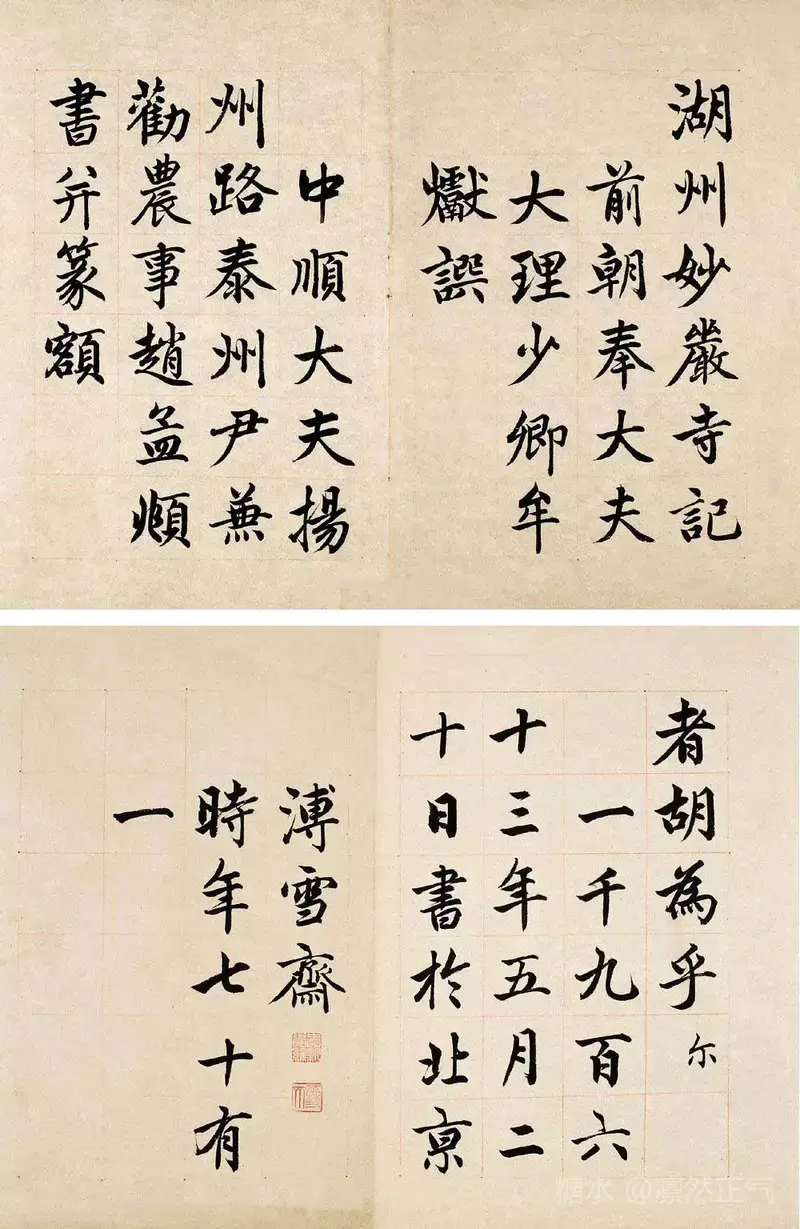 湖州妙嚴寺記
前朝奉大夫
大理少卿牟
巘譔
中順大夫揚
州路泰州尹兼
勸農事趙孟頫
書并篆額
者胡為乎 尔
一千九百六
十三年五月二
十日書於北京
溥雪齋
時年七十有
一
糖水 @凛然正气